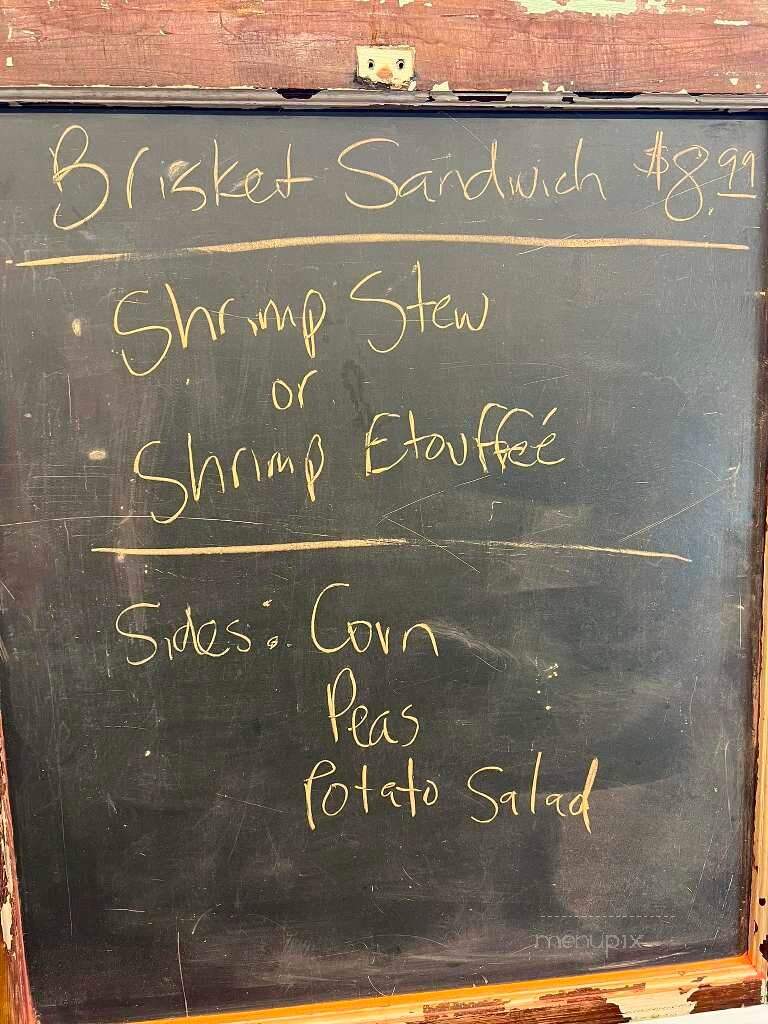 Brisket Sandwich $8.99
Shrimp Stew
or
Shrimp Etouffeé
Sides: Corn
Peas
Potato Salad
menupix